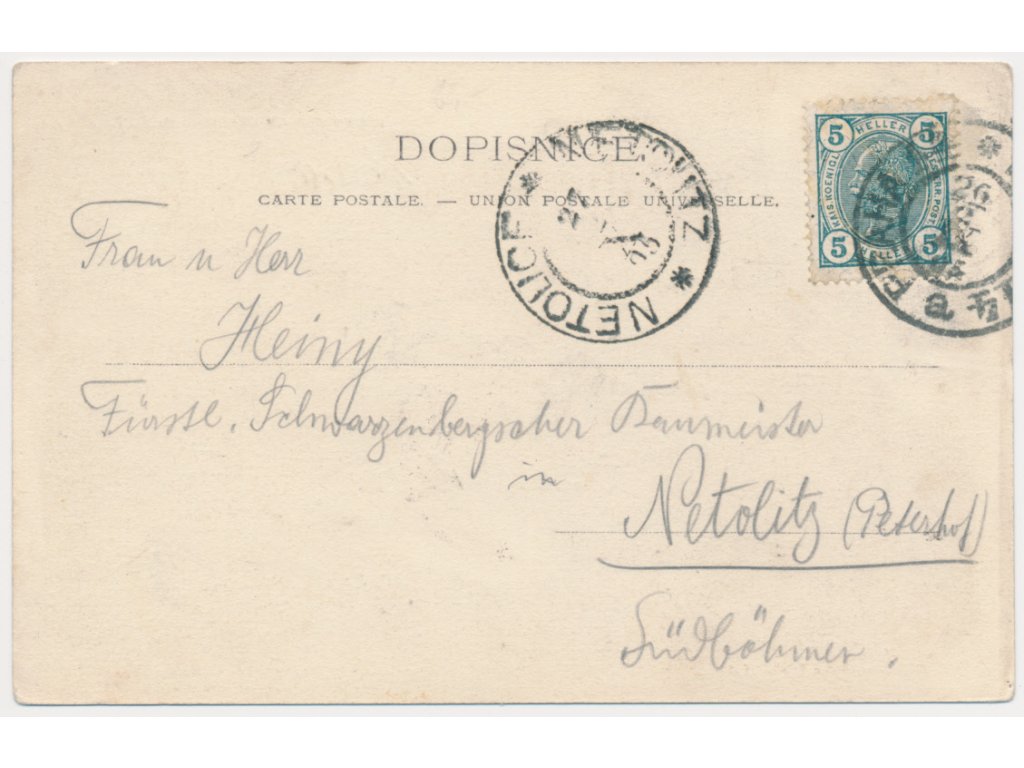 DOPISNICE.
CARTE POSTALE. — UNION POSTALE UNIVERSELLE.
5 HELLER 5
KAIS. KOENIGL. OESTERR. POST
5 HELLER 5
NETOLITZ * NETOLICE *
26
Frau u Herr
Heiny
Fürstl. Schwarzenbergscher Baumeister
in
Netolitz (Peterhof)
Südböhmen.